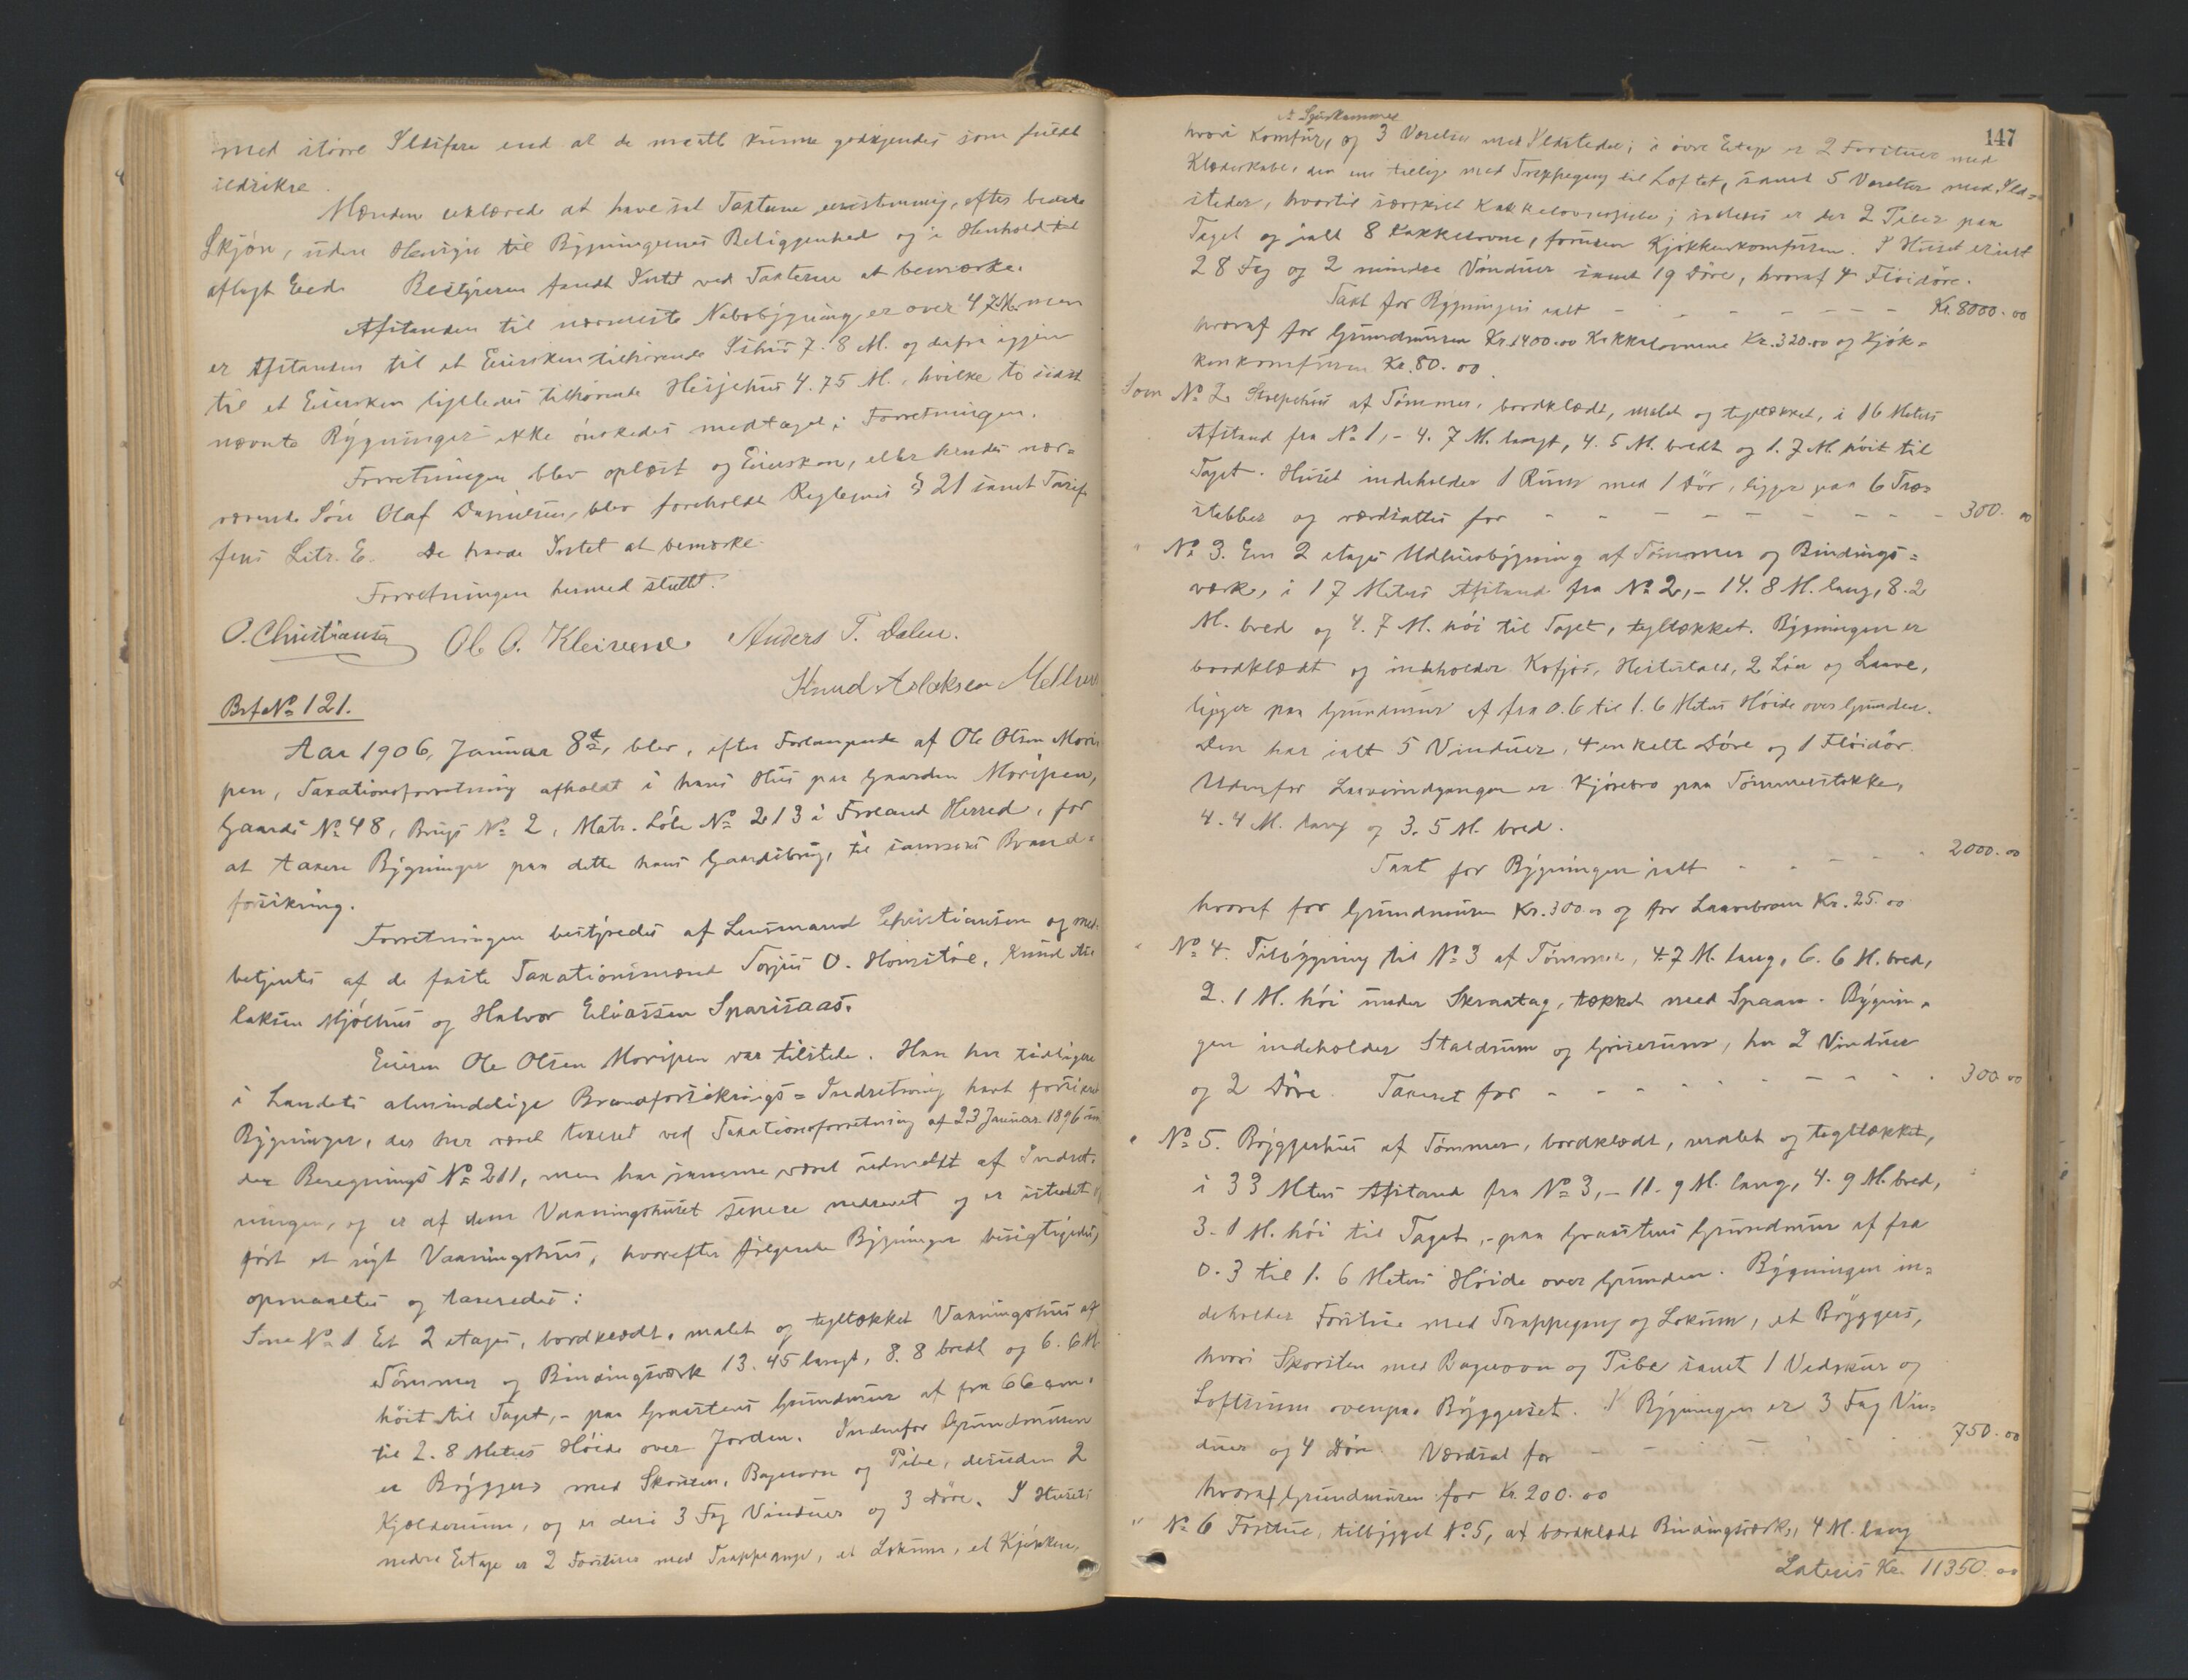 med större Ildsfare end at de maatte kunne godkjendes som fuldt
ildsikre.
Mændene erklærede at have sat Taxterne eenstemmig, efter bedste
Skjön, uden Hensyn til Bygningernes Beliggenhed og i Henhold til
aflagt Eed. Bestyreren fandt Intet ved Taxterne at bemærke.
Afstanden til nærmeste Nabobygning er over 47 M. men
er Afstanden til et Eiersken tilhörende Ishus 7.8 M. og derfra igjen
til et Eiersken ligeledes tilhörende Hesjehus 4.75 M., hvilke to sidst
nævnte Bygninger ikke önskedes medtaget i Forretningen.
Forretningen blev oplæst og Eiersken, eller hendes nær=
værende Sön Olaf Danielsen, blev foreholdt Reglernes § 21 samt Tarif
fens Litr. E. De havde Intet at bemærke.
Forretningen hermed sluttet.
O. Christiansen Ole O. Kleivene Anders T. Dalen.
Knud Aslaksen
Brf. No 121.
Aar 1906, Januar 8de, blev, efter Forlangende af Ole Olsen Mori
pen, Taxationsforretning afholdt i hans Hus paa Gaarden Moripen,
Gaards No 48, Brugs No 2, Matr. Löbe No 213 i Froland Herred, for
at taxere Bygninger paa dette hans Gaardsbrug, til sammes Brand=
forsikring.
Forretningen bestyredes af Lensmand Christiansen og med
betjentes af de faste Taxationsmænd Torjus O. Homstöl, Knud As
laksen Mjölhus og Halvor Eliassen Sparsaas.
Eieren Ole Olsen Moripen var tilstede. Han har tidligere
i Landets almindelige Brandforsikrings=Indretning havt forsikret
Bygninger, der har været taxeret ved Taxationsforretning af 23 Januar 1896 un
der Beregnings No 211, men har samme været udmeldt af Indret=
ningen, og er af dem Vaaningshuset senere nedrevet og er istedet op
fört et nyt Vaaningshus, hvorefter fölgende Bygninger besigtigedes,
opmaaltes og taxeredes:
Som No 1 Et 2 etages, bordklædt, malet og tegltækket Vaaningshus af
Tömmer og Bindingsværk 13.45 langt, 8.8 bredt og 6.6 M.
höit til Taget,- paa Graastens Grundmur af fra 66 cm.
til 2.8 Meters Höide over Jorden. Indenfor Grundmuren
er Bryggers med Skorsten, Bagerovn og Pibe, desuden 2
Kjælderrum, og er deri 3 Fag Vinduer og 3 Döre. I Husets
nedre Etage er 2 Forstuer med Trappegange, et Lokum, et Kjökken,
147
hvori Komfur, og 3 Værelser med Ildsteder; i övre Etage er 2 Forstuer med
Klædeskabe, den ene tillige med Trappegang til Loftet, samt 5 Værelser med Ild=
steder, hvortil særskilt ; saaledes er der 2 Piber paa
Taget og ialt 8 Kakkelovne, foruden Kjökkenkomfuren. I Huset er ialt
28 Fag og 2 mindre Vinduer samt 19 Döre, hvoraf 4 Flöidöre.
Taxt for Bygningen ialt - - - - - - - Kr. 8000.00
hvoraf for Grundmuren Kr. 1400.00 Kakkelovnene Kr. 320.00 og Kjök=
kenkomfuren Kr. 80.00.
Som No 2. Stolpehus af Tömmer, bordklædt, malet og tegltækket, i 16 Meters
Afstand fra No 1,- 4.7 M. langt, 4.5 M. bredt og 1.7 M. höit til
Taget. Huset indeholder 1 Rum med 1 Dör, ligger paa 6 Træ=
stabber og værdsattes for - - - - - - - - - 300.00
" No 3. En 2 etages Udhusbygning af Tömmer og Bindings=
værk, i 17 Meters Afstand fra No 2,- 14.8 M. lang, 8.2
M. bred og 4.7 M. höi til Taget, tegltækket. Bygningen er
bordklædt og indeholder Kofjös, Hestestald, 2 Löer og Laave,
ligger paa Grundmur af fra 0.6 til 1.6 Meters Höide over Grunden.
Den har ialt 5 Vinduer, 4 enkelte Döre og 1 Flöidör.
Udenfor Laaveindgangen er Kjörebro paa Tömmerstokke,
4.4 M. lang og 3.5 M. bred.
Taxt for Bygningen ialt - - - - - 2000.00
hvoraf for Grundmuren Kr. 300.00 og for Laavebroen Kr. 25.00
" No 4. Tilbygning til No 3 af Tömmer, 4.7 M. lang, 6.6 M. bred,
2.1 M. höi under Skraatag, tækket med Spaan. Bygnin=
gen indeholder Staldrum og Griserum, har 2 Vinduer
og 2 Döre. Taxeret for - - - - - - - - - 300.00
" No 5. Bryggerhus af Tömmer, bordklædt, malet og tegltækket,
i 33 Meters Afstand fra No 3,- 11.9 M. lang, 4.9 M. bred,
3.1 M. höi til Taget,- paa Graastens Grundmur af fra
0.3 til 1.6 Meters Höide over Grunden. Bygningen in=
deholder Forstue med Trappegang og Lokum, et Bryggers,
hvori Skorsten med Bagerovn og Pibe samt 1 Vedskur og
Loftsrum ovenpaa Bryggerset. I Bygningen er 3 Fag Vin=
duer og 4 Döre. Værdsat for - - - - - - - 750.00
hvoraf Grundmuren for Kr. 200.00
" No 6 Forstue, tilbygget No 5, af bordklædt Bindingsværk, 4 M. lang
Lateris Kr. 11350.00